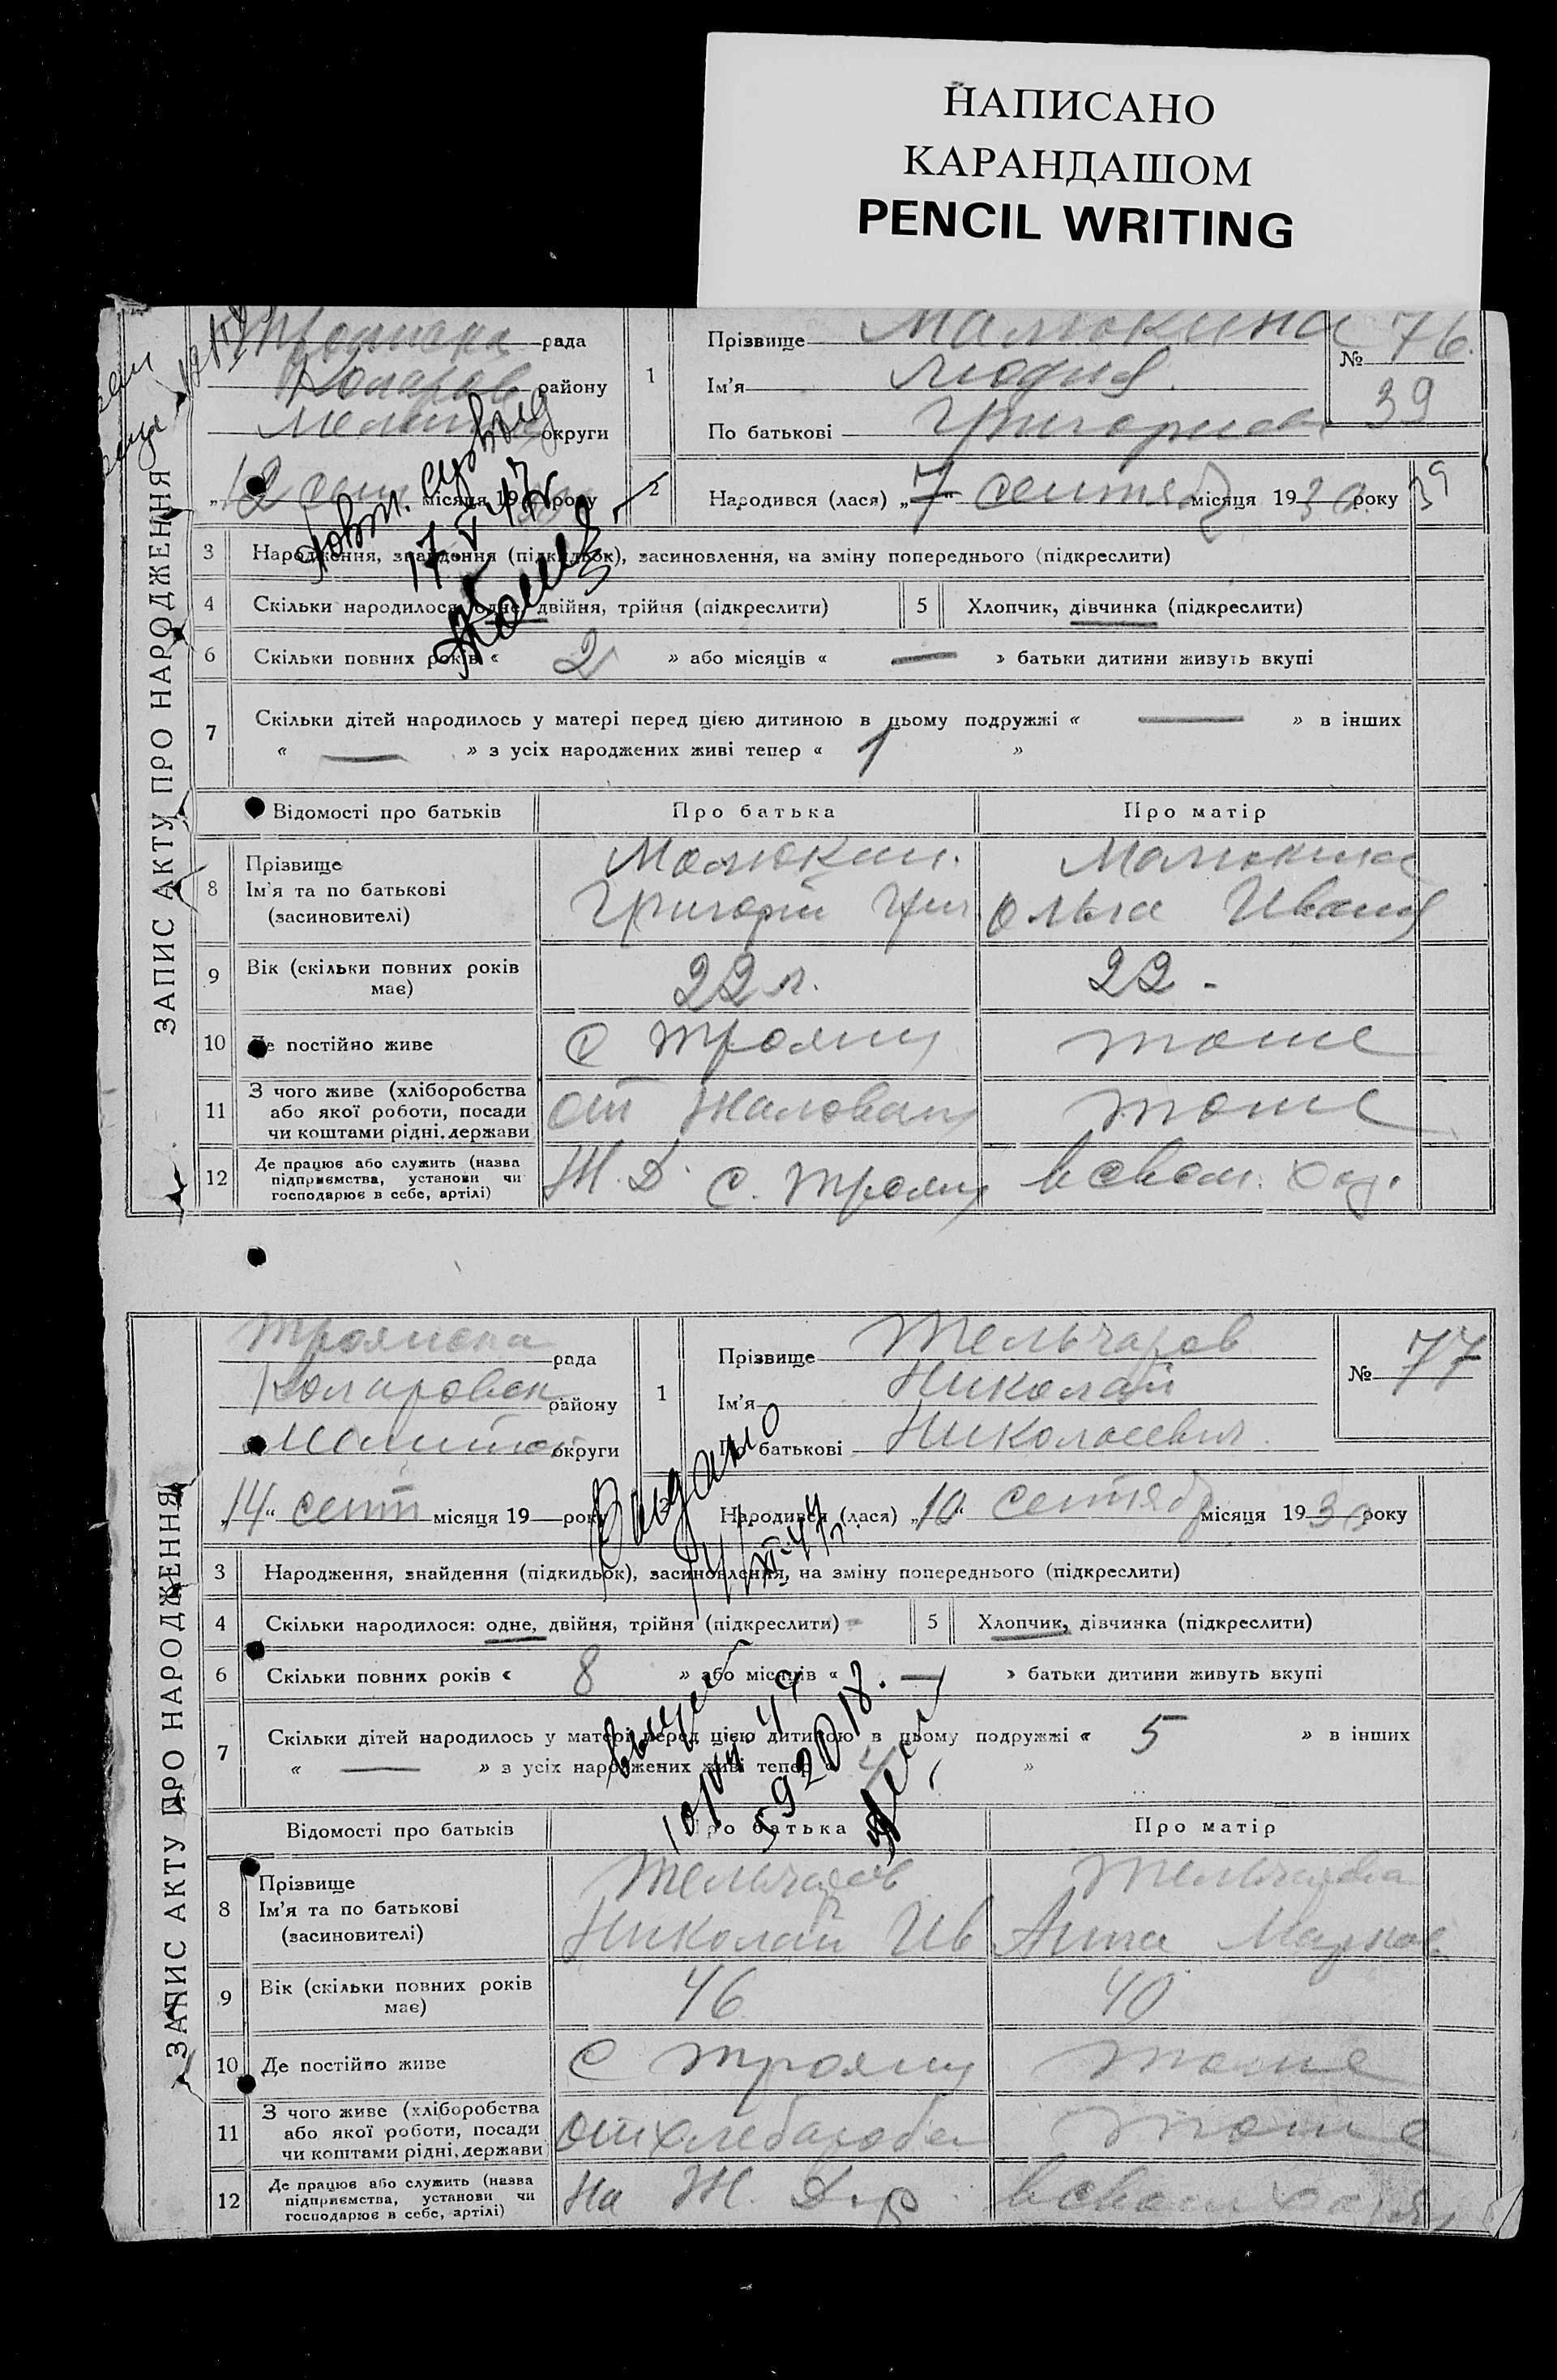 НАПИСАНО
КАРАНДАШОМ
PENCIL WRITING
ЗАПИС АКТУ ПРО НАРОДЖЕННЯ
Трояиска рада
Коларов району
Мелит округи
„12 сент місяця 19 року
1
Прізвище Малюкина
Ім'я Людия
По батькові Григориев
№ 76.
39
2 Народився (лася) „7“ сентяб місяця 1930 року
39
повт. 
17 V 47г
3 Народження, знайдення (підкидьок), засиновлення, на зміну попереднього (підкреслити)
4 Скільки народилося: одне, двійня, трійня (підкреслити) 5 Хлопчик, дівчинка (підкреслити)
6 Скільки повних років « 2 » або місяців « — » батьки дитини живуть вкупі
7 Скільки дітей народилось у матері перед цією дитиною в цьому подружжі « — » в інших
« — » з усіх народжених живі тепер « 1 »
Відомості про батьків Про батька Про матір
8 Прізвище Малюкин. Малюкина
Ім'я та по батькові Григорій Григ Ольга Иван
(засиновителі)
9 Вік (скільки повних років має) 22 л. 22 -
10 Де постійно живе с Трояны тоже
11 З чого живе (хліборобства або якої роботи, посади чи коштами рідні, держави от жалован тоже
12 Де працює або служить (назва підприємства, установи чи господарює в себе, артілі) Ж. Д. с. Трояны в своем. хоз.
ЗАПИС АКТУ ПРО НАРОДЖЕННЯ
Трояиска рада
Коларовск району
Мелитоп округи
„14“ сент місяця 19 року
1
Прізвище Тельчаров
Ім'я Николай
По батькові Николаевич
№ 77
Народився (лася) „10“ сентяб місяця 1930 року
Видано
3 Народження, знайдення (підкидьок), засиновлення, на зміну попереднього (підкреслити)
4 Скільки народилося: одне, двійня, трійня (підкреслити) 5 Хлопчик, дівчинка (підкреслити)
6 Скільки повних років « 8 » або місяців « — » батьки дитини живуть вкупі
7 Скільки дітей народилось у матері перед цією дитиною в цьому подружжі « 5 » в інших
« — » з усіх народжених живі тепер « 4 »
Відомості про батьків Про батька Про матір
8 Прізвище Тельчаров Тельчарова
Ім'я та по батькові Николай Ив Анна Марков
(засиновителі)
9 Вік (скільки повних років має) 46 40
10 Де постійно живе с Трояны тоже
11 З чого живе (хліборобства або якої роботи, посади чи коштами рідні, держави от хлебароба тоже
12 Де працює або служить (назва підприємства, установи чи господарює в себе, артілі) на Ж. Д. в своем